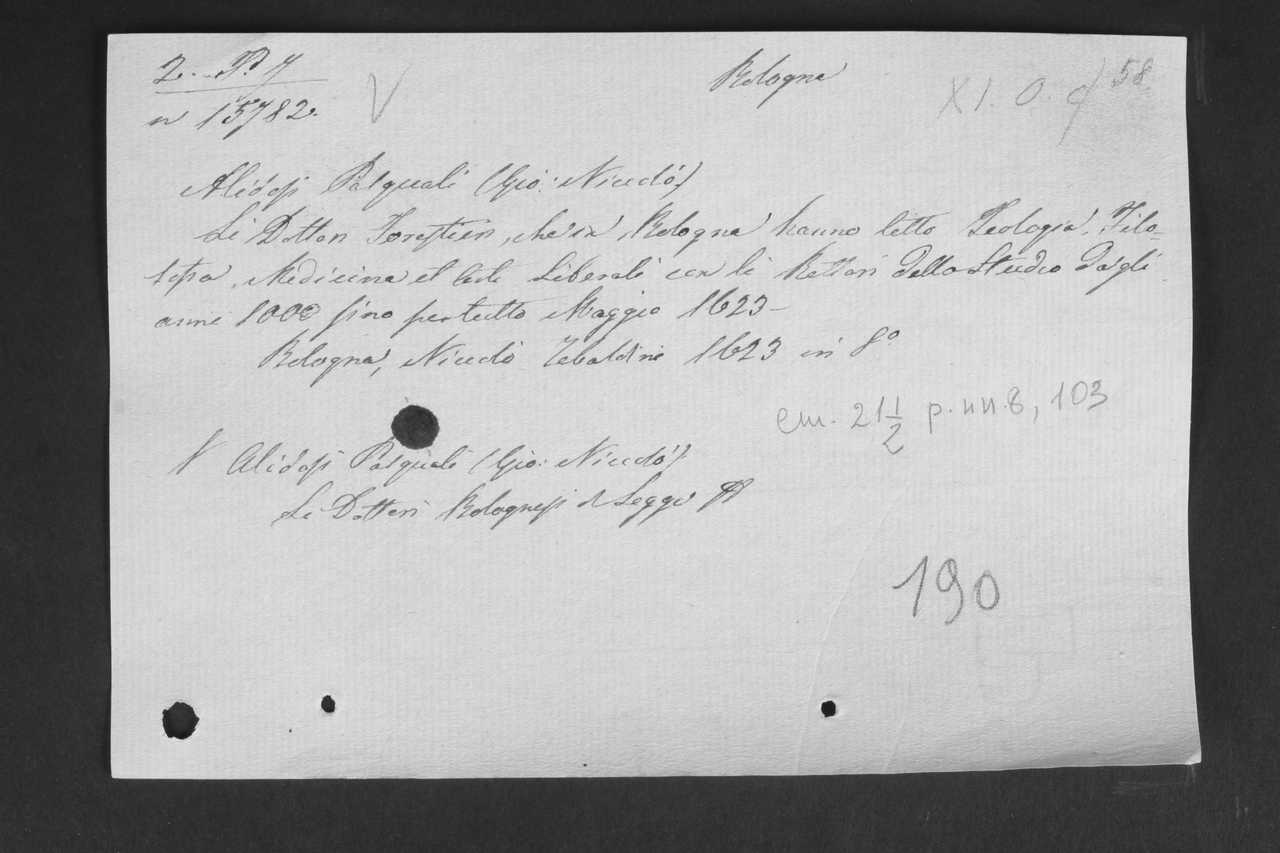 2. P. 7
n 15782.
V
Bologna
XI. O. 58
Alidosi Pasquali (Gio: Niccolò)
Li Dottori Forestieri, che in Bologna hanno letto Teologia, Filo-
sofia, Medicina et Arti Liberali con li Rettori dello Studio dagli
anni 1000 fino per tutto Maggio 1623 -
Bologna, Niccolò Tebaldini 1623 in 8º
cm. 21 1/2 p. nn. 8, 103
V Alidosi Pasquali (Gio: Niccolò)
Li Dottori Bolognesi di Legge
190